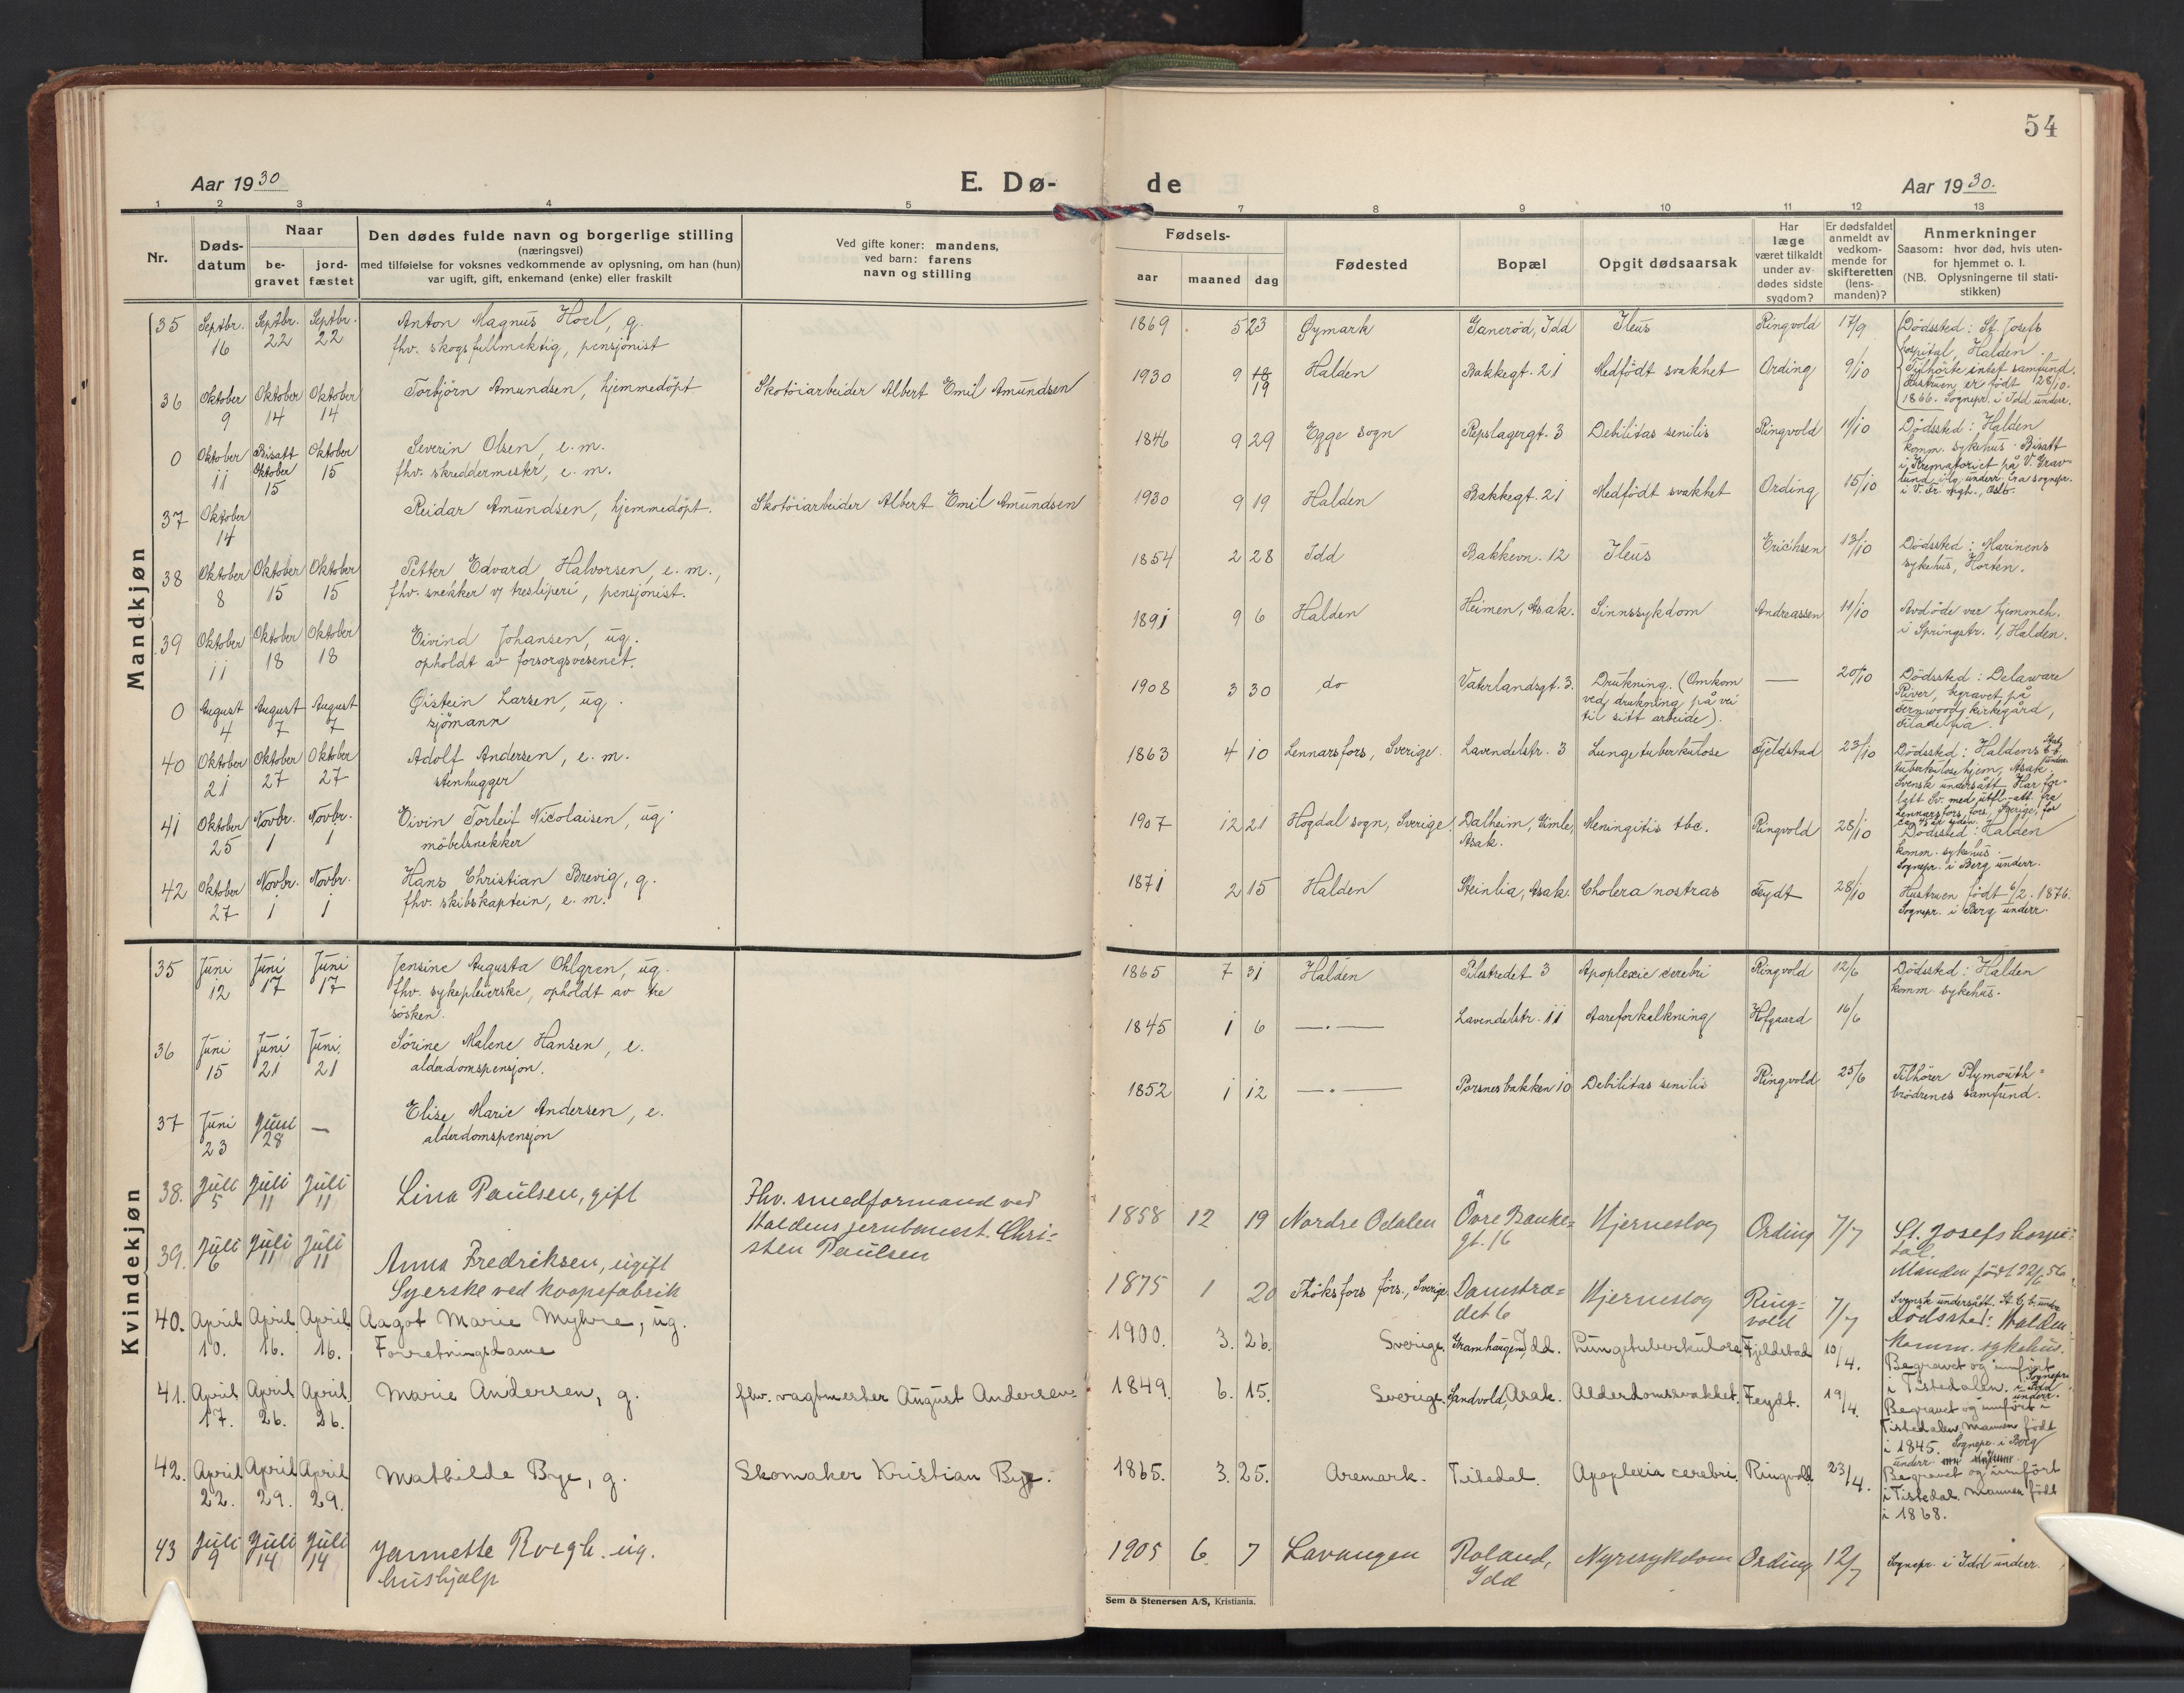 54
Aar 1930
E. Dø-
de
Aar 1930.
1 2 3 4 5 7 8 9 10 11 12 13
Nr.
Døds-
datum
Naar
be-
gravet
jord-
fæstet
Den dødes fulde navn og borgerlige stilling
(næringsvei)
med tilføielse for voksnes vedkommende av oplysning, om han (hun)
var ugift, gift, enkemand (enke) eller fraskilt
Ved gifte koner: mandens,
ved barn: farens
navn og stilling
Fødsels-
aar
maaned
dag
Fødested
Bopæl
Opgit dødsaarsak
Har
læge
været tilkaldt
under av-
dødes sidste
sygdom?
Er dødsfaldet
anmeldt av
vedkom-
mende for
skifteretten
(lens-
manden)?
Anmerkninger
Saasom: hvor død, hvis uten-
for hjemmet o. l.
(NB. Oplysningerne til stati-
stikken)
Mandkjøn
35 Septbr. 16 Septbr. 22 Septbr. 22 Anton Magnus Hoel, g.
fhv. skogsfullmektig, pensjonist
1869 5 23 Øymark Ganerød, Idd Ileus Ringvold 17/9 Dödssted: St. Josefs
hospital, Halden.
Tilhörte intet samfund.
Hustruen er født 128/10.
1866. Sognepr. i Idd underr.
36 Oktober 9 Oktober 14 Oktober 14 Torbjörn Amundsen, hjemmedöpt Skotöiarbeider Albert Emil Amundsen
1930 9 18 19 Halden Bakkegt. 21 Medfödt svakhet Ording 9/10
0 Oktober 11 Bisatt Oktober 15 Oktober 15 Severin Olsen, e. m.
fhv. skreddermester, e. m.
1846 9 29 Egge sogn Repslagergt. 3 Debilitas senilis Ringvold 11/10 Dödssted: Halden
komm. sykehus. Bisatt
i Krematoriet på V. Grav-
lund
37 Oktober 14 Reidar Amundsen, hjemmedöpt. Skotöiarbeider Albert Emil Amundsen
1930 9 19 Halden Bakkegt. 21 Medfödt svakhet Ording 15/10
38 Oktober 8 Oktober 15 Oktober 15 Petter Edvard Halvorsen, e. m.,
fhv. snekker v/ tresliperi, pensjonist.
1854 2 28 Idd Bakkevn. 12 Ileus Erichsen 13/10 Dödssted: Marinens
sykehus, Horten.
39 Oktober 11 Oktober 18 Oktober 18 Eivind Johansen, ug.
opholdt av forsorgsvesenet.
1891 9 6 Halden Heimen, Asak. Sinnssykdom Andreassen 11/10 Avdöde var hjemmeh.
i Springstr. 1, Halden.
0 August 4 August 7 August 7 Öistein Larsen, ug.
sjömann
1908 3 30 do Vaterlandsgt. 3. Drukning. (Omkom
ved drukning på vei
til sitt arbeide).
— 20/10 Dödssted: Delaware
River, begravet på
Fernwood kirkegård,
Filadelfia.
40 Oktober 21 Oktober 27 Oktober 27 Adolf Andersen, e. m.
stenhugger
1863 4 10 Lennarsfors, Sverige. Lavendelstr. 3 Lungetuberkulose Fjeldstad 23/10 Dödssted: Haldens
tuberkulosehjem, Asak.
Svensk undersått. Har for-
latt Sv. med utfl.-att. fra
Lennarsfors fors., Sverige, for
ca. 45 år siden.
41 Oktober 25 Novbr. 1 Novbr. 1 Eivin Torleif Nicolaisen, ug.
möbelsnekker
1907 12 21 Hogdal sogn, Sverige. Dalheim, Gimle,
Asak.
Meningitis tbc. Ringvold 28/10 Dödssted: Halden
komm. sykehus.
Sognepr. i Berg underr.
42 Oktober 27 Novbr. 1 Novbr. 1 Hans Christian Brevig, g.
fhv. skibskaptein, e. m.
1871 2 15 Halden Steinlia, Asak. Cholera nostras Feydt 28/10 Hustruen födt 6/2. 1876.
Sognepr. i Berg underr.
Kvindekjøn
35 Juni 12 Juni 17 Juni 17 Jensine Augusta Ohlgren, ug.
fhv. sykepleierske, opholdt av tre
sösken.
1865 7 31 Halden Pilestredet 3 Apoplexie cerebri Ringvold 12/6 Dödssted: Halden
komm. sykehus.
36 Juni 15 Juni 21 Juni 21 Sörine Malene Hansen, e.
alderdomspensjon.
1845 1 6 —.— Lavendelstr. 11 Aareforkalkning Hofgaard 16/6
37 Juni 23 Juni 28 — Elise Marie Andersen, e.
alderdomspensjon
1852 1 12 —.— Porsnesbakken 10 Debilitas senilis Ringvold 25/6 Tilhörer Plymouth-
brödrenes samfund.
38. Juli 5 Juli 11 Juli 11 Lina Paulsen, gift Fhv. smedformand ved
Haldens jernbanest. Chri-
sten Paulsen
1858 12 19 Nordre Odalen Övre Banke-
gt. 16
Hjerneslag Ording 7/7 St. Josefs hospi-
tal.
Manden född 22/6 56
39. Juli 6 Juli 11 Juli 11 Anna Fredriksen, ugift
Syerske ved kaapefabrik
1875 1 20 Thöksfors förs., Sverige Damstræ-
det 6
Hjerneslag Ring-
vold
7/7 Svensk undersått.
Dödssted: Halden
Komm. sykehus.
40. April 10. April 16. April 16. Aagot Marie Myhre, ug.
Forretningsdame
1900. 3. 26. Sverige. Idd. Lungetuberkulose Fjeldstad 10/4. Begravet og innfört
i Tistedalen. Sognepr. i Idd underr.
41. April 17. April 26. April 26. Marie Andersen, g. fhv. vagtmester August Andersen.
1849. 6. 15. Sverige. Sandvold, Asak. Alderdomssvakhet. Feydt. 19/4. Begravet og innfört i
Tistedalen, mannen födt
i 1845. Sognepr. i Berg
underr.
42. April 22. April 29. April 29. Mathilde Bye, g. Skomaker Kristian Bye.
1865. 3. 25. Aremark. Tistedal. Apoplexia cerebri. Ringvold 23/4. Begravet og innfört
i Tistedal. Mannen födt
i 1868.
43 Juli 9 Juli 14 Juli 14 Jannette Roegh. ug.
hushjælp
1905 6. 7 Lavangen Roland,
Idd
Nyresykdom Ording 12/7 Sognepr. i Idd underr.
Sem & Stenersen A/S, Kristiania.